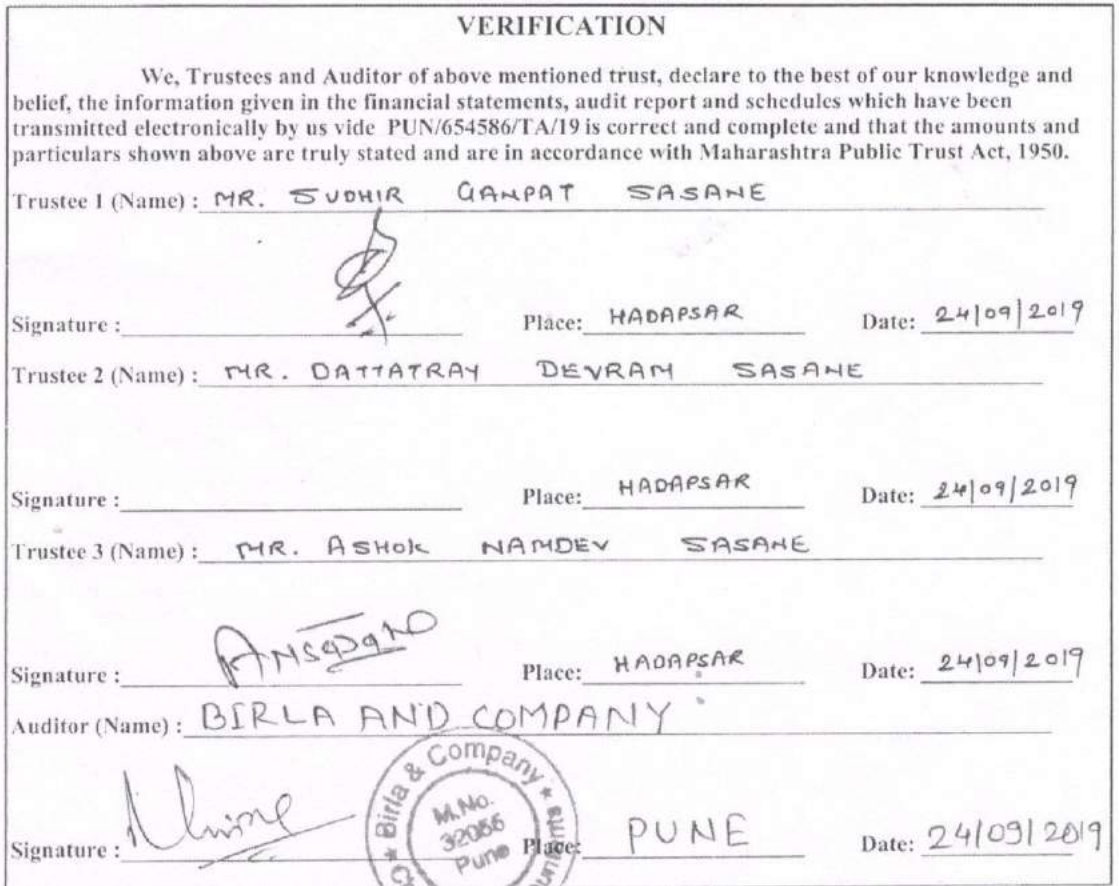 VERIFICATION
We, Trustees and Auditor of above mentioned trust, declare to the best of our knowledge and
belief, the information given in the financial statements, audit report and schedules which have been
transmitted electronically by us vide PUN/654586/TA/19 is correct and complete and that the amounts and
particulars shown above are truly stated and are in accordance with Maharashtra Public Trust Act, 1950.
Trustee 1 (Name) : MR. SUDHIR GANPAT SASANE
Signature : Place: HADAPSAR Date: 24/09/2019
Trustee 2 (Name) : MR. DATTATRAY DEVRAM SASANE
Signature : Place: HADAPSAR Date: 24/09/2019
Trustee 3 (Name) : MR. ASHOK NAMDEV SASANE
Signature : Place: HADAPSAR Date: 24/09/2019
Auditor (Name) : BIRLA AND COMPANY
Birla & Company
M.No.
Pune
Signature : Place: PUNE Date: 24/09/2019